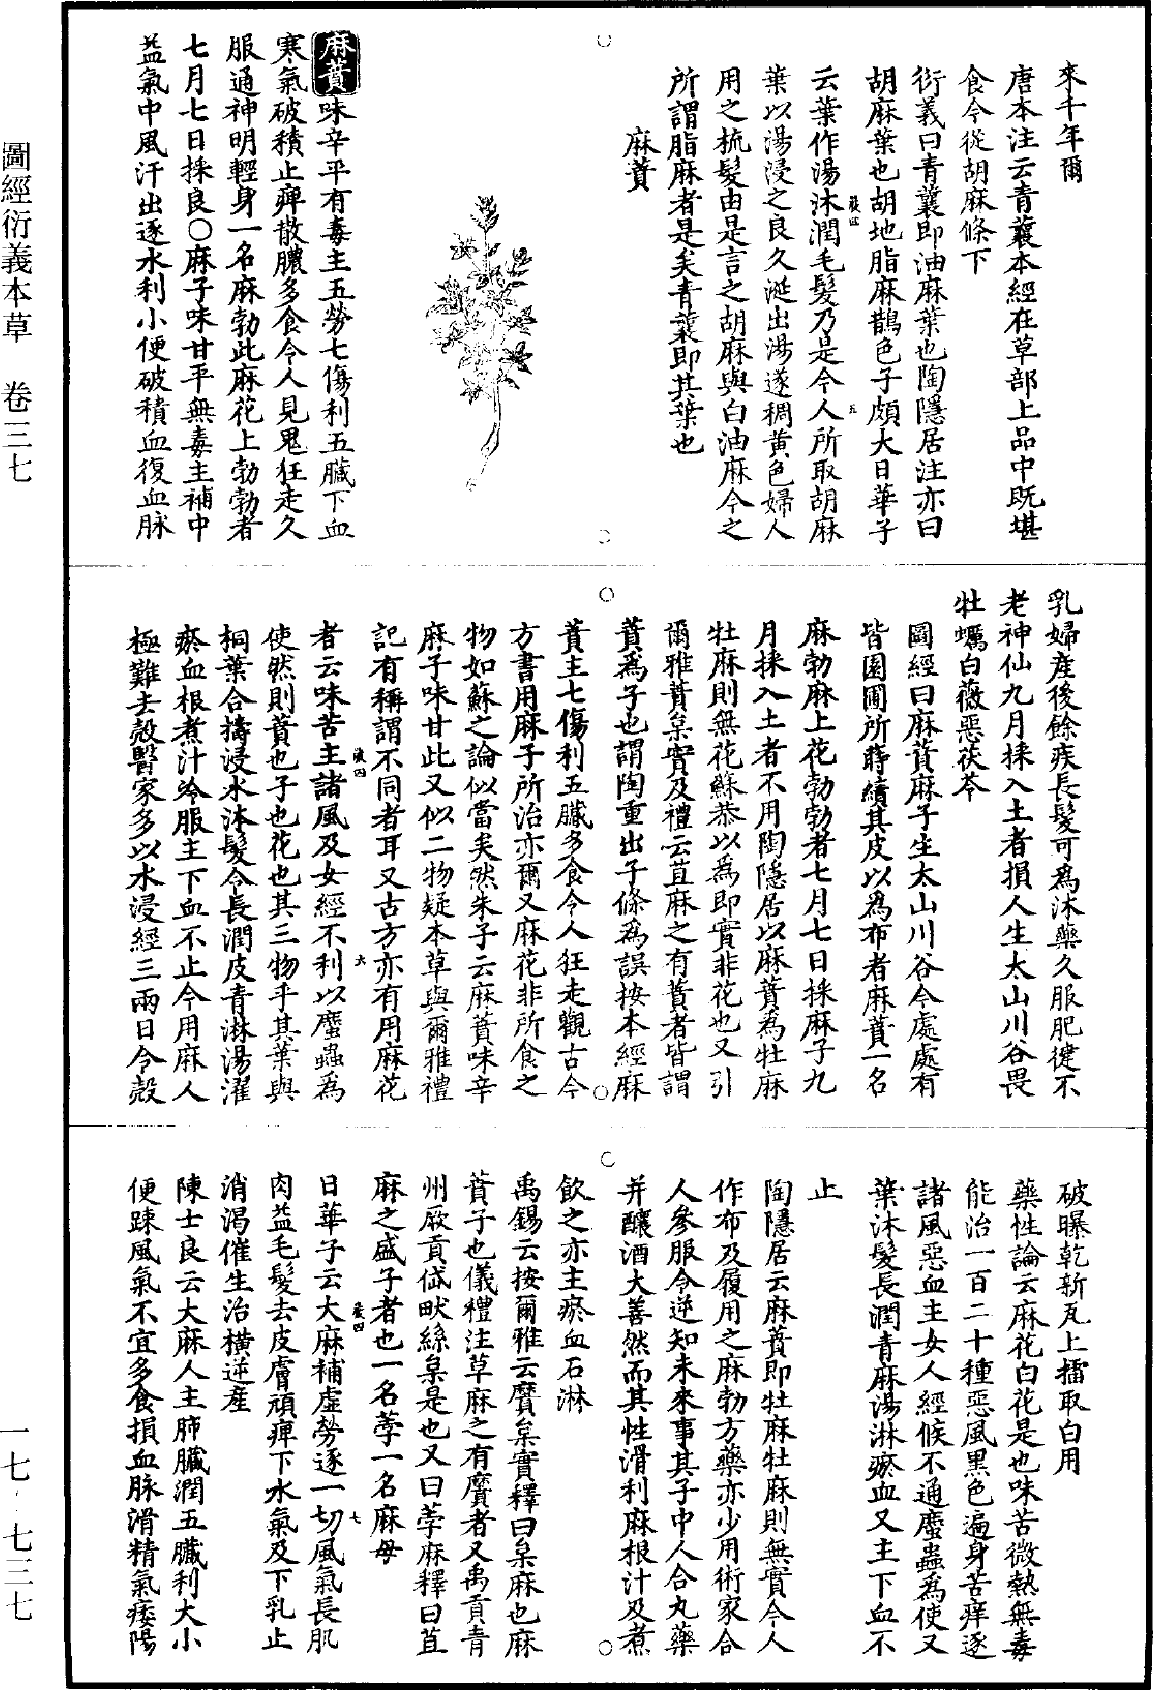 來千年爾
唐本注云青蘘本經在草部上品中既堪
食今從胡麻條下
衍義曰青蘘即油麻葉也陶隱居注亦曰
胡麻葉也胡地脂麻鵲色子頗大日華子
云葉作湯沐潤毛髮乃是今人所取胡麻
葉以湯浸之良久涎出湯遂稠黃色婦人
用之梳髮由是言之胡麻與白油麻今之
所謂脂麻者是矣青蘘即其葉也
麻蕡
麻蕡味辛平有毒主五勞七傷利五臟下血
寒氣破積止痺散膿多食令人見鬼狂走久
服通神明輕身一名麻勃此麻花上勃勃者
七月七日採良○麻子味甘平無毒主補中
益氣中風汗出逐水利小便破積血復血脉
乳婦產後餘疾長髮可為沐藥久服肥健不
老神仙九月採入土者損人生太山川谷畏
牡蠣白薇惡茯苓
圖經曰麻蕡麻子生太山川谷今處處有
皆園圃所蒔績其皮以為布者麻蕡一名
麻勃麻上花勃勃者七月七日採麻子九
月採入土者不用陶隱居以麻蕡為牡麻
牡麻則無花蘇恭以為即實非花也又引
爾雅蕡枲實及禮云苴麻之有蕡者皆謂
蕡為子也謂陶重出子條為誤按本經麻
蕡主七傷利五臟多食令人狂走觀古今
方書用麻子所治亦爾又麻花非所食之
物如蘇之論似當矣然朱子云麻蕡味辛
麻子味甘此又似二物疑本草與爾雅禮
記有稱謂不同者耳又古方亦有用麻花
者云味苦主諸風及女經不利以䗪蟲為
使然則蕡也子也花也其三物乎其葉與
桐葉合擣浸水沐髮令長潤皮青淋湯濯
瘀血根煮汁冷服主下血不止今用麻人
極難去殼醫家多以水浸經三兩日令殼
破曝乾新瓦上擂取白用
藥性論云麻花白花是也味苦微熱無毒
能治一百二十種惡風黑色遍身苦痒逐
諸風惡血主女人經候不通䗪蟲為使又
葉沐髮長潤青麻湯淋瘀血又主下血不
止
陶隱居云麻蕡即牡麻牡麻則無實今人
作布及履用之麻勃方藥亦少用術家合
人參服令逆知未來事其子中人合丸藥
并釀酒大善然而其性滑利麻根汁及煮
飲之亦主瘀血石淋
禹錫云按爾雅云黂枲實釋曰枲麻也麻
蕡子也儀禮注草麻之有黂者又禹貢青
州厥貢岱畎絲枲是也又曰荸麻釋曰苴
麻之盛子者也一名荸一名麻母
日華子云大麻補虛勞逐一切風氣長肌
肉益毛髮去皮膚頑痺下水氣及下乳止
消渴催生治橫逆產
陳士良云大麻人主肺臟潤五臟利大小
便踈風氣不宜多食損血脉滑精氣痿陽
圖經衍義本草　卷三七
一七·七三七